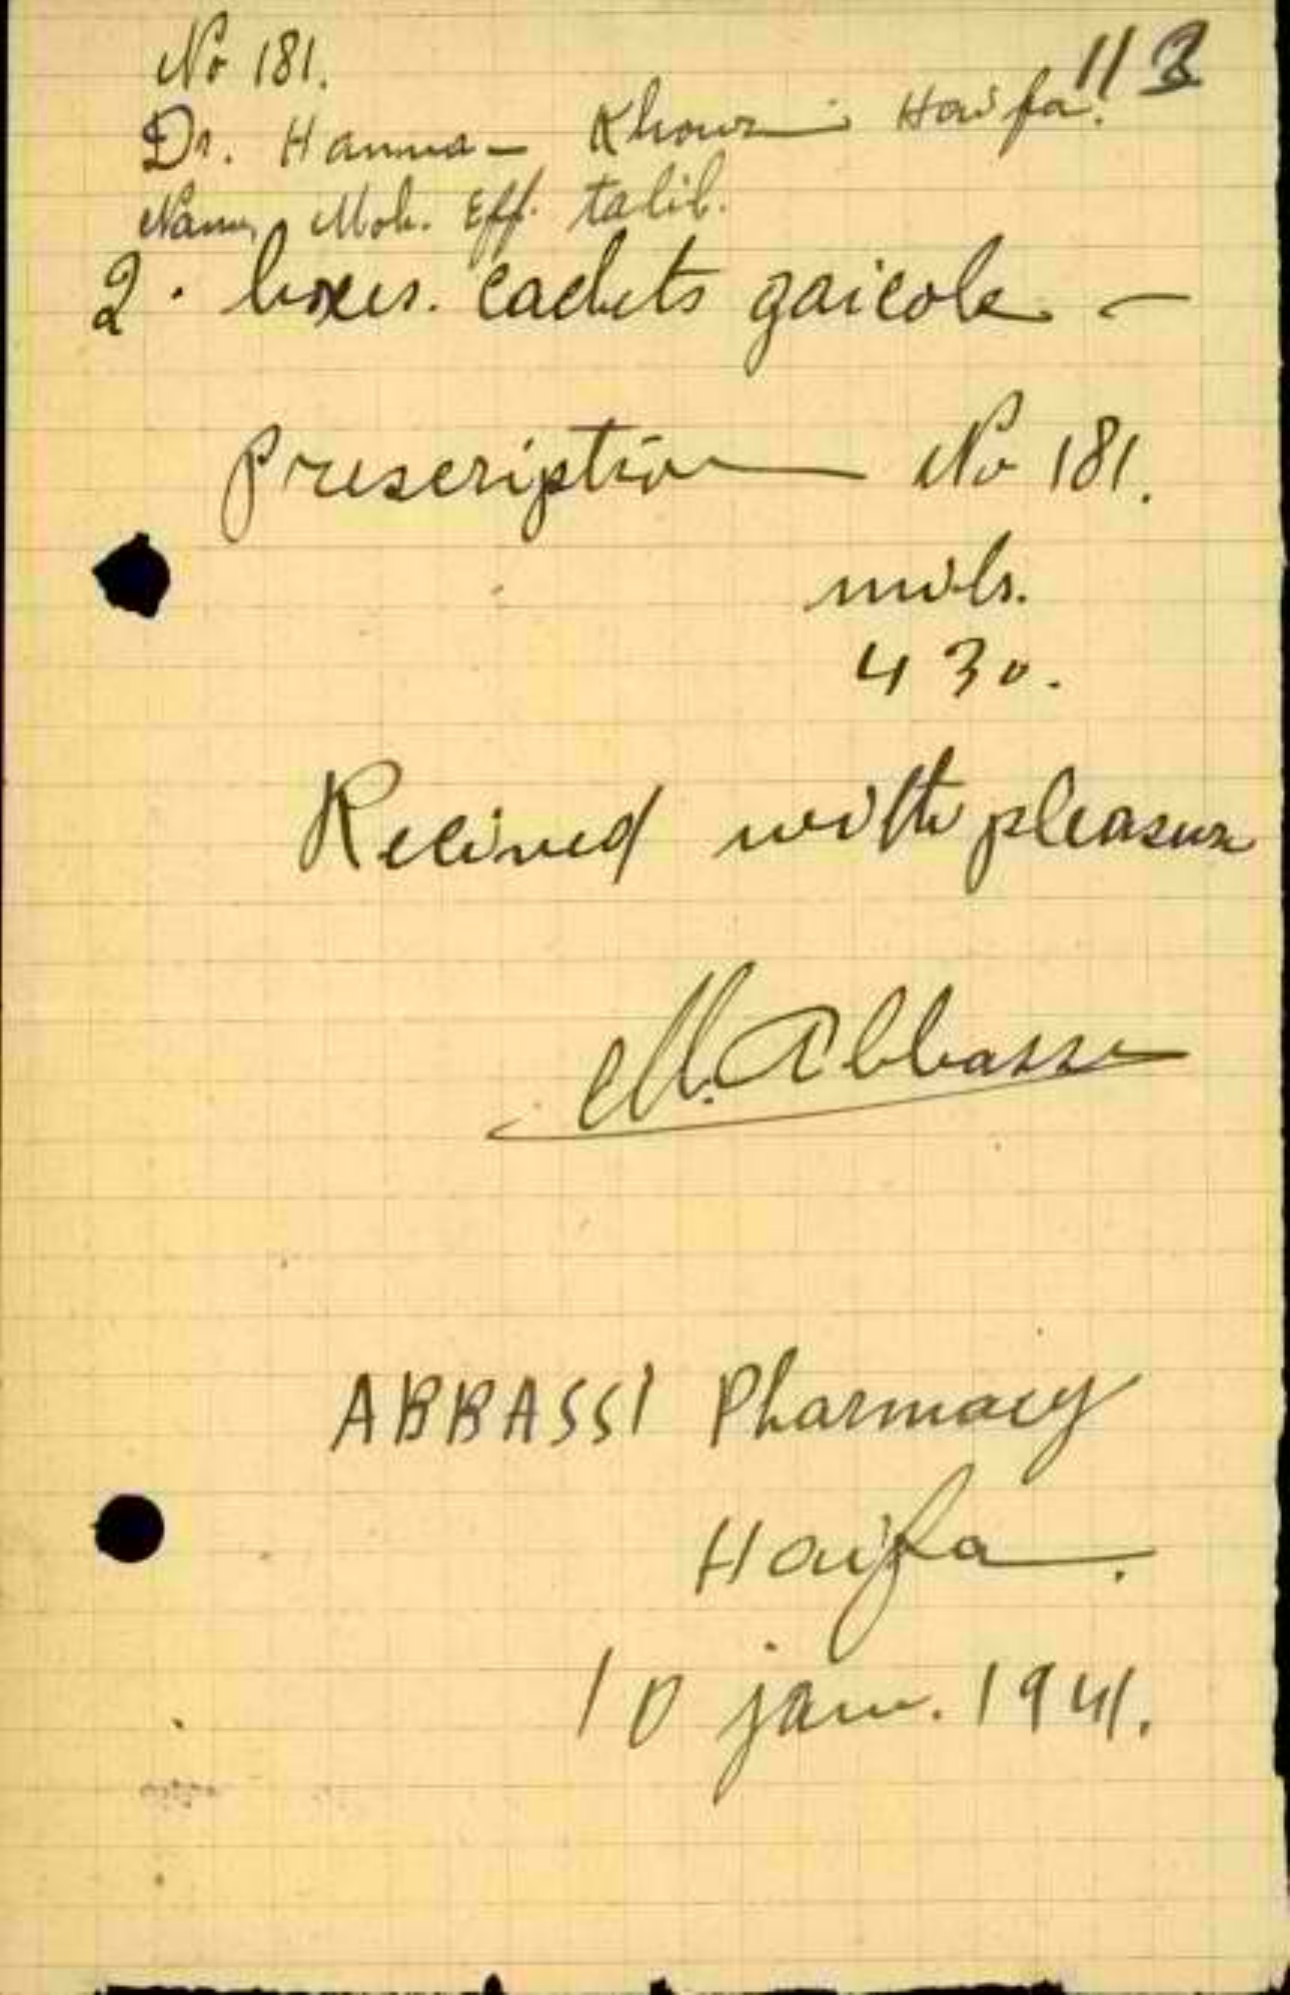 113
No 181.
Dr. Hanna - Khouri Haifa.
Name, Moh. Eff. talib.
2. boxes. cachets gaicole -
Prescription No 181.
mils.
430.
Recived with pleasure
M. Abbassi
ABBASSI Pharmacy
Haifa.
10 janv. 1941.